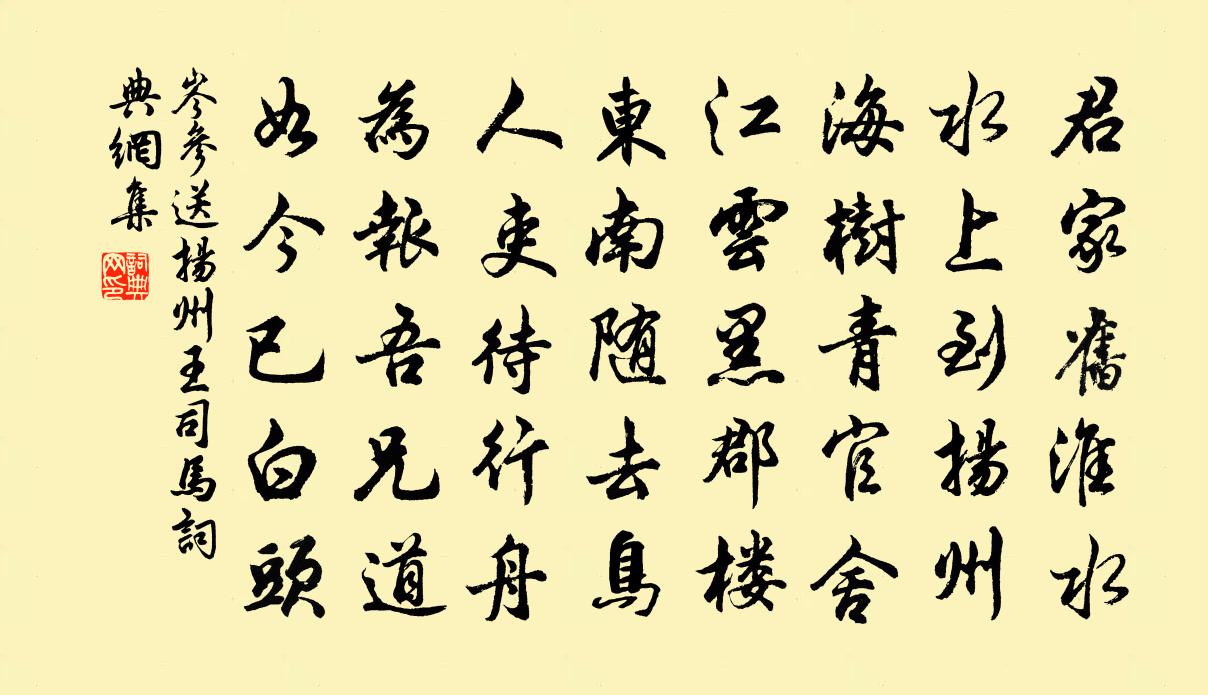 君家舊淮水
水上到揚州
海樹青官舍
江雲黑郡楼
東南随去鳥
人吏待行舟
為報吾兄道
如今已白頭
岑參送揚州王司馬詞
典網集
詞典
网印